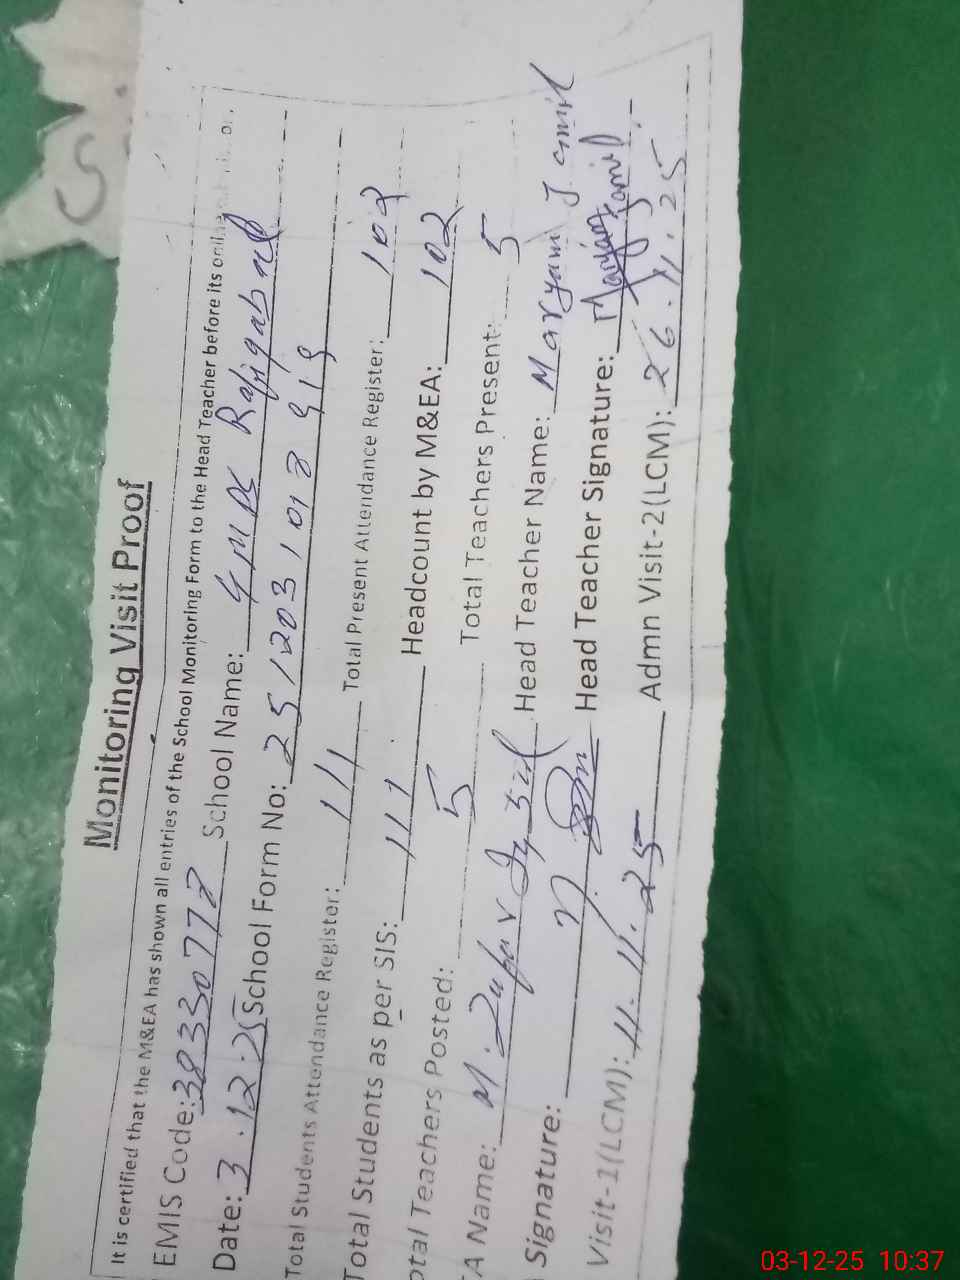 Monitoring Visit Proof
It is certified that the M&EA has shown all entries of the School Monitoring Form to the Head Teacher before its online
EMIS Code: 38330772 School Name: GMPS Rafiqabad
Date: 3.12.25 School Form No: 2512031012919
Total Students Attendance Register: 111 Total Present Attendance Register: 102
Total Students as per SIS: 111 Headcount by M&EA: 102
otal Teachers Posted: 5 Total Teachers Present: 5
A Name: M. Zafar Head Teacher Name: Maryam Jamil
Signature: Head Teacher Signature: Maryam Jamil
Visit-1(LCM): 11.11.25 Admn Visit-2(LCM): 26.11.25
03-12-25 10:37